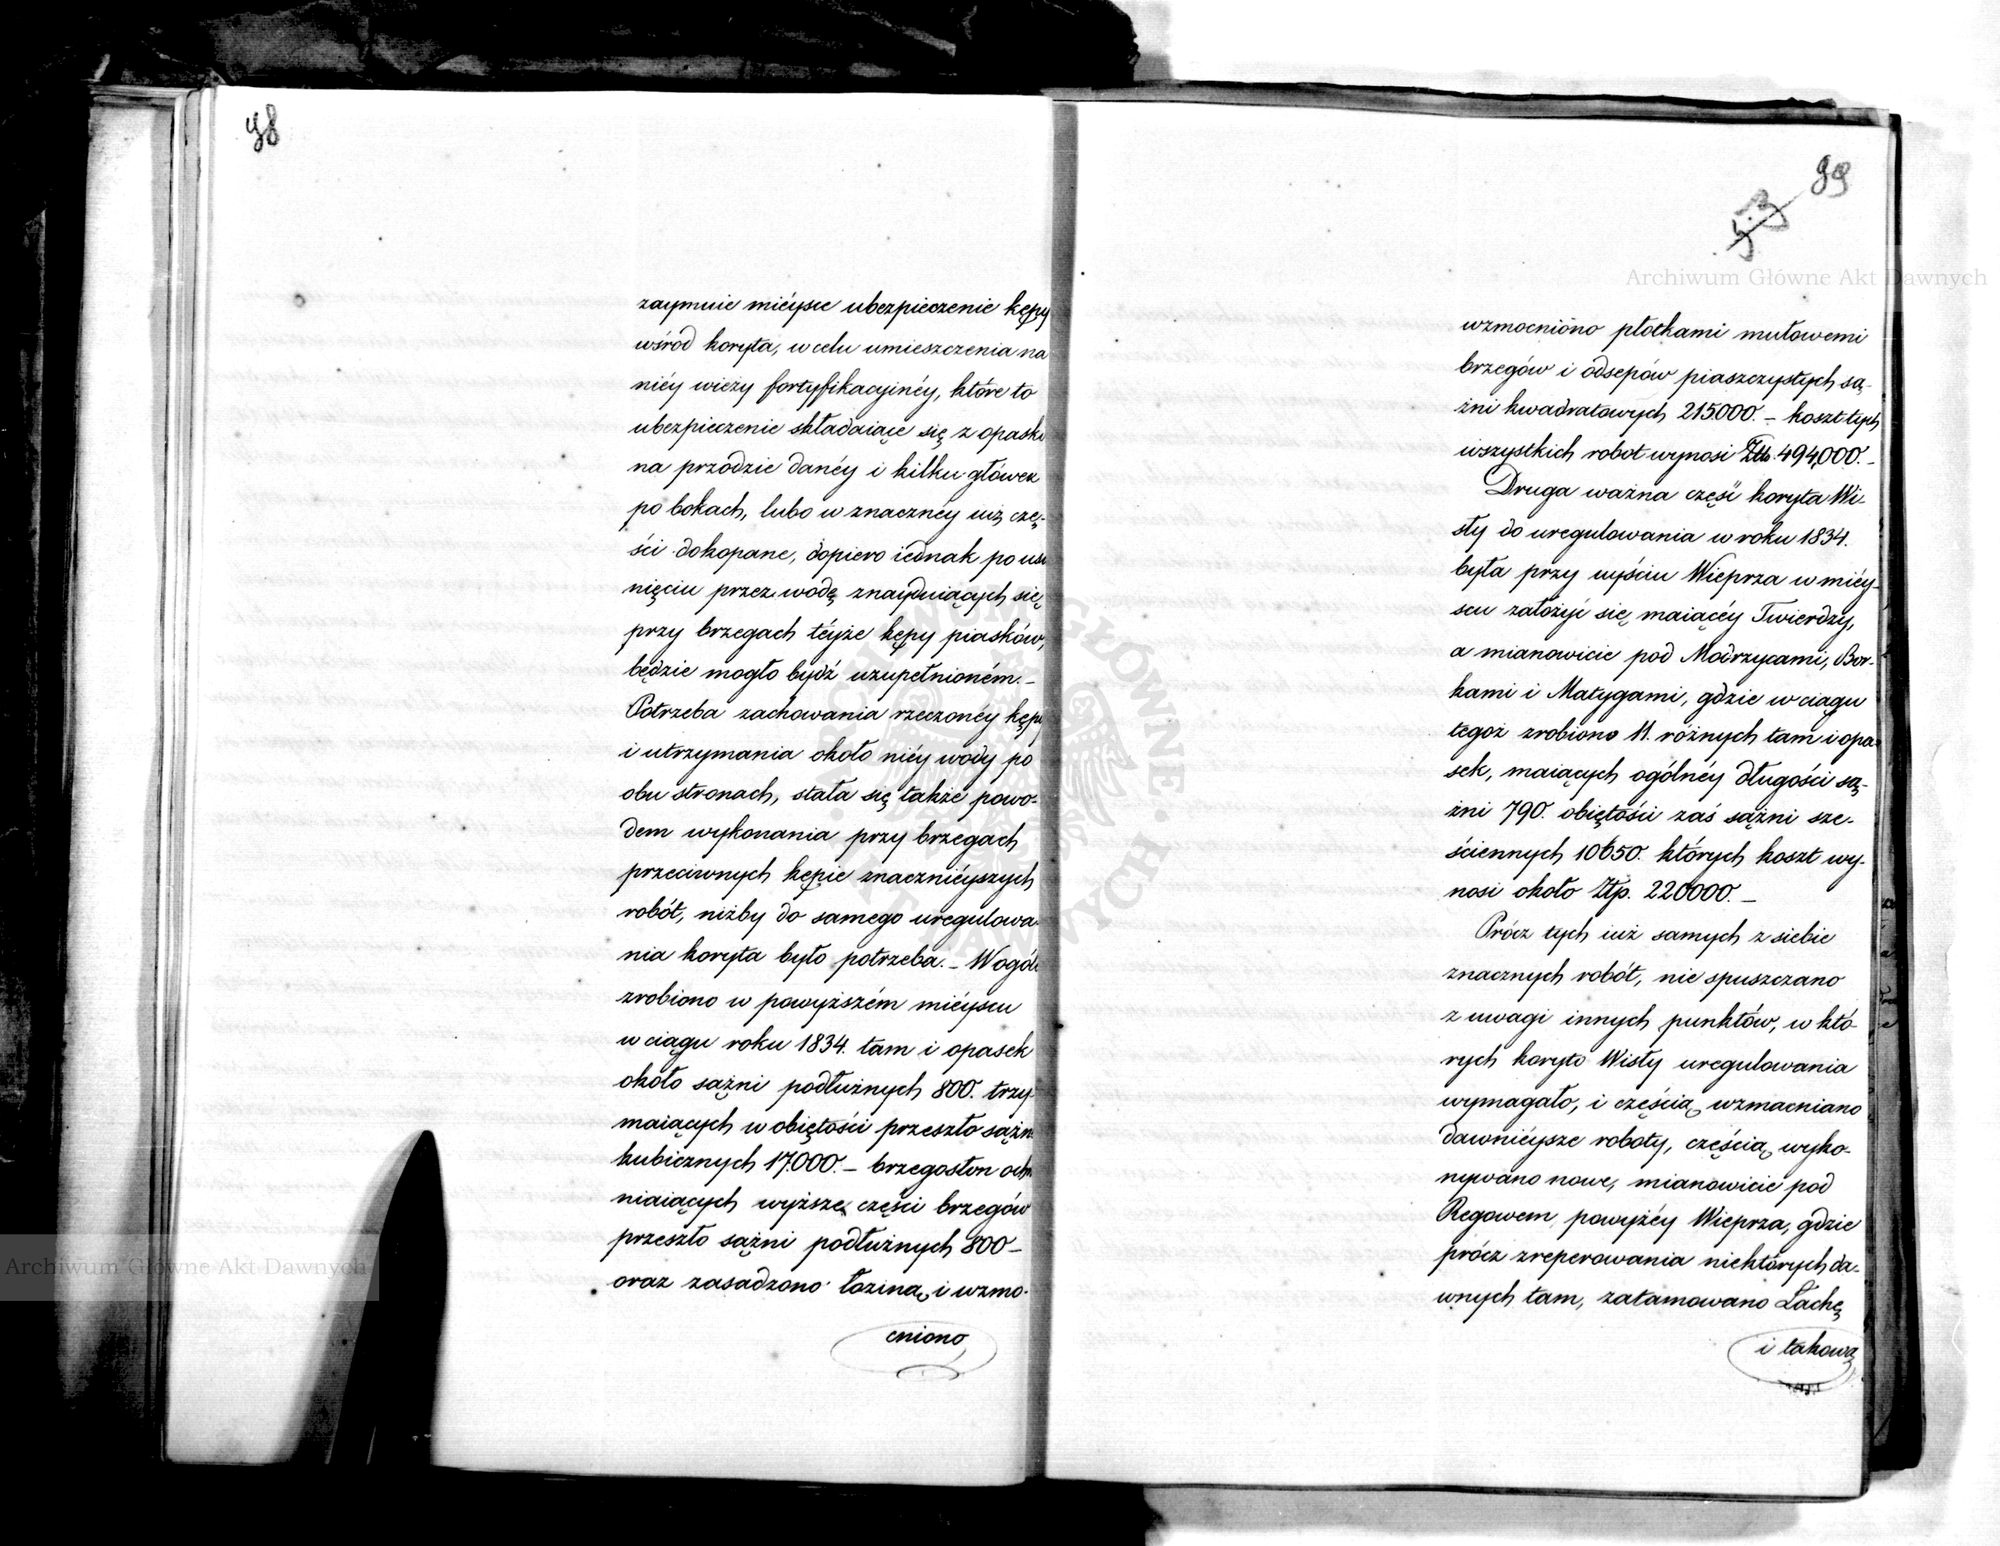 98
zaymuie mieysce ubezpieczenie kępy
wśród koryta, w celu umieszczenia na
niéy wieży fortyfikacyinéy, które to
ubezpieczenie składaiące się z opaski
na przodzie danéy i kilku główek
po bokach, lubo w znacznéy iuż czę-
ści dokopane, dopiero iednak po usu
nięciu przez wodę znayduiących się
przy brzegach téyże kępy piasków,
będzie mogło bydź uzupełnioném. –
Potrzeba zachowania rzeczonéy kępy
i utrzymania około niéy wody po
obu stronach, stała się także powo-
dem wykonania przy brzegach
przeciwnych kępie znacznieyszych
robót, niżby do samego uregulowa-
nia koryta było potrzeba. – W ogóle
zrobiono w powyższém mieyscu
w ciągu roku 1834. tam i opasek
około sążni podłużnych 800. trzy-
maiących w obiętości przeszło sążni
kubicznych 17.000. – brzegosłon och
niaiących wyższe części brzegów
przeszło sążni podłużnych 800 –
oraz zasadzono łoziną i wzmo-
cniono
99
53
wzmocniono płotkami mułowemi
brzegów i odsepów piaszczystych są-
żni kwadratowych 215000. – koszt tych
wszystkich robot wynosi Złp. 494,000. –
Druga ważna część koryta Wi-
sły do uregulowania w roku 1834.
była przy uyściu Wieprza w miéy-
scu założyć się maiącéy Twierdzy,
a mianowicie pod Modrzycami, Bor-
kami i Matygami, gdzie w ciągu
tegoż zrobiono 11. różnych tam i opa-
sek, maiących ogólnéy długości są-
żni 790. obiętości zaś sążni sze-
ściennych 10650. których koszt wy-
nosi około Złp. 220000. –
Prócz tych iuż samych z siebie
znacznych robót, nie spuszczano
z uwagi innych punktów, w któ-
rych koryto Wisły uregulowania
wymagało, i częścią wzmacniano
dawnieysze roboty, częścią wyko-
nywano nowe, mianowicie pod
Regowem powyżéy Wieprza, gdzie
prócz zreperowania niektórych da-
wnych tam, zatamowano Łachę
i takową
Archiwum Główne Akt Dawnych
Archiwum Główne Akt Dawnych
ARCHIWUM GŁÓWNE AKT DAWNYCH